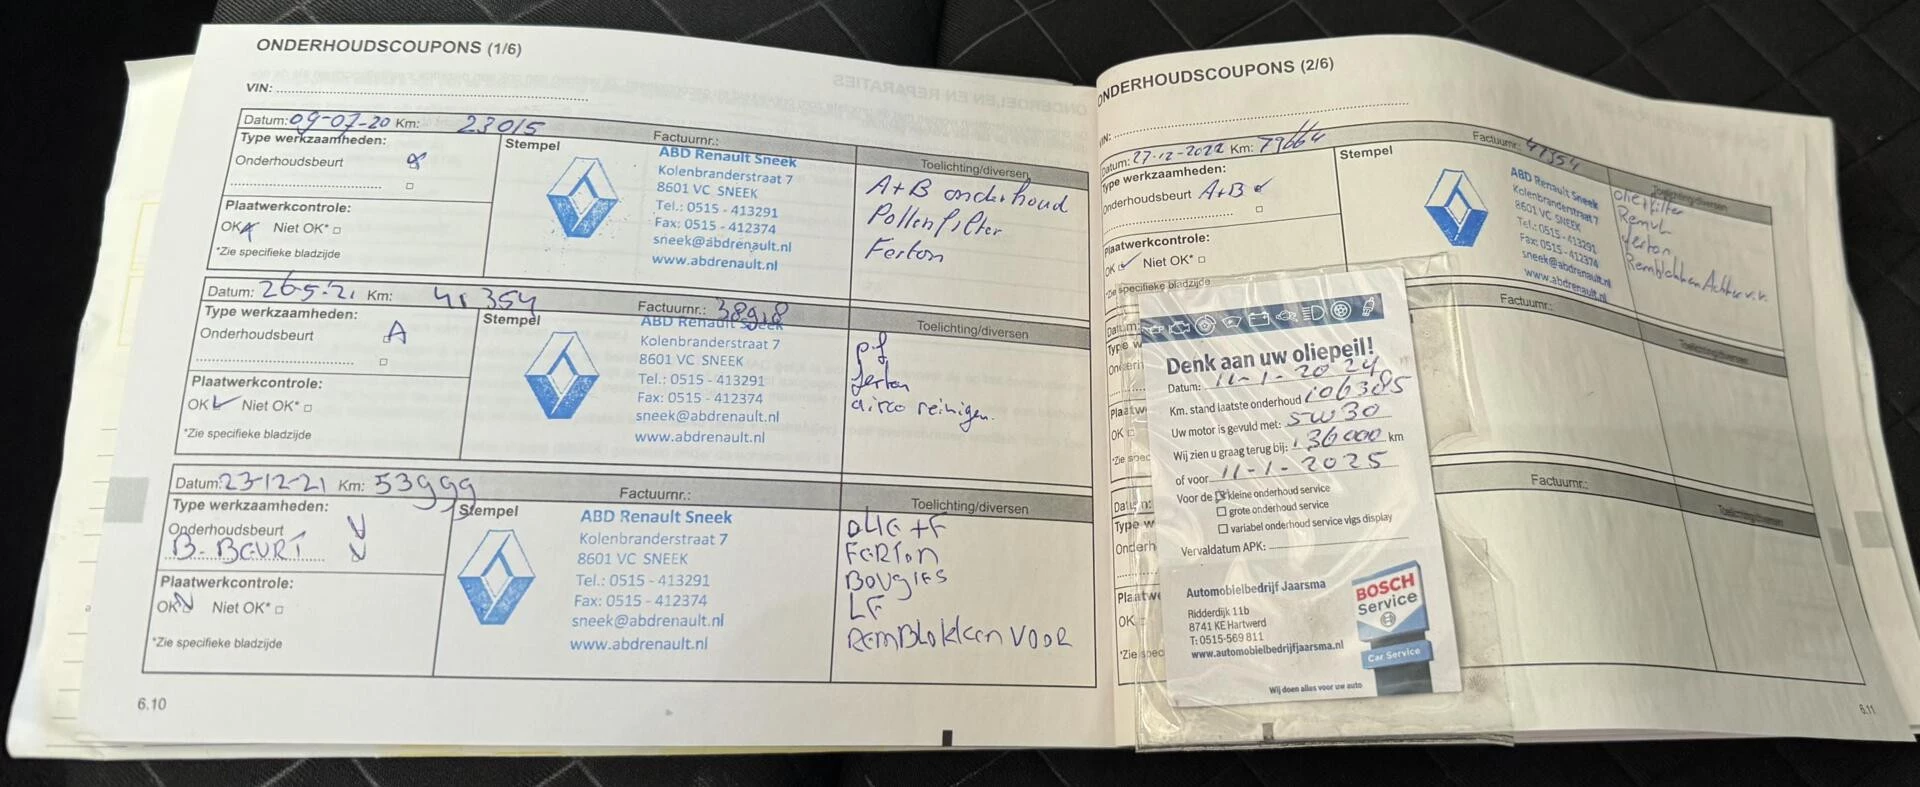 ONDERHOUDSCOUPONS (1/6)
VIN:
Datum: 09-07-20 Km: 23015
Factuurnr.:
Type werkzaamheden:
Onderhoudsbeurt
Stempel
ABD Renault Sneek
Kolenbranderstraat 7
8601 VC SNEEK
Tel.: 0515 - 413291
Fax: 0515 - 412374
sneek@abdrenault.nl
www.abdrenault.nl
Toelichting/diversen
A+B onderhoud
Pollenfilter
Ferton
Plaatwerkcontrole:
OK Niet OK*
*Zie specifieke bladzijde
Datum: 26-5-21 Km: 41354
Factuurnr.: 38918
Type werkzaamheden:
Onderhoudsbeurt A
Stempel
ABD Renault Sneek
Kolenbranderstraat 7
8601 VC SNEEK
Tel.: 0515 - 413291
Fax: 0515 - 412374
sneek@abdrenault.nl
www.abdrenault.nl
Toelichting/diversen
pf
ferton
airco reinigen.
Plaatwerkcontrole:
OK Niet OK*
*Zie specifieke bladzijde
Datum: 23-12-21 Km: 53999
Factuurnr.:
Type werkzaamheden:
Onderhoudsbeurt
B-BEURT
Stempel
ABD Renault Sneek
Kolenbranderstraat 7
8601 VC SNEEK
Tel.: 0515 - 413291
Fax: 0515 - 412374
sneek@abdrenault.nl
www.abdrenault.nl
Toelichting/diversen
OLIE+F
FERTON
BOUGIES
LF
REMBLOKKEN VOOR
Plaatwerkcontrole:
OK Niet OK*
*Zie specifieke bladzijde
6.10
ONDERHOUDSCOUPONS (2/6)
VIN:
Datum: 27-12-2022 Km: 79664
Factuurnr.: 47354
Type werkzaamheden:
Onderhoudsbeurt A+B
Stempel
ABD Renault Sneek
Kolenbranderstraat 7
8601 VC SNEEK
Tel.: 0515 - 413291
Fax: 0515 - 412374
sneek@abdrenault.nl
www.abdrenault.nl
Toelichting/diversen
oliefilter
Remvl
ferton
Remblokken Achter v.v.
Plaatwerkcontrole:
OK Niet OK*
*Zie specifieke bladzijde
Denk aan uw oliepeil!
Datum: 11-1-2024
Km. stand laatste onderhoud 106385
Uw motor is gevuld met: 5W30
Wij zien u graag terug bij: 136000 km
of voor 11-1-2025
Voor de kleine onderhoud service
grote onderhoud service
variabel onderhoud service vlgs display
Vervaldatum APK:
Automobielbedrijf Jaarsma
Ridderdijk 11b
8741 KE Hartwerd
T: 0515-569 811
www.automobielbedrijfjaarsma.nl
BOSCH
Service
Car Service
Wij doen alles voor uw auto
Factuurnr.:
Toelichting/diversen
Factuurnr.:
Toelichting/diversen
6.11